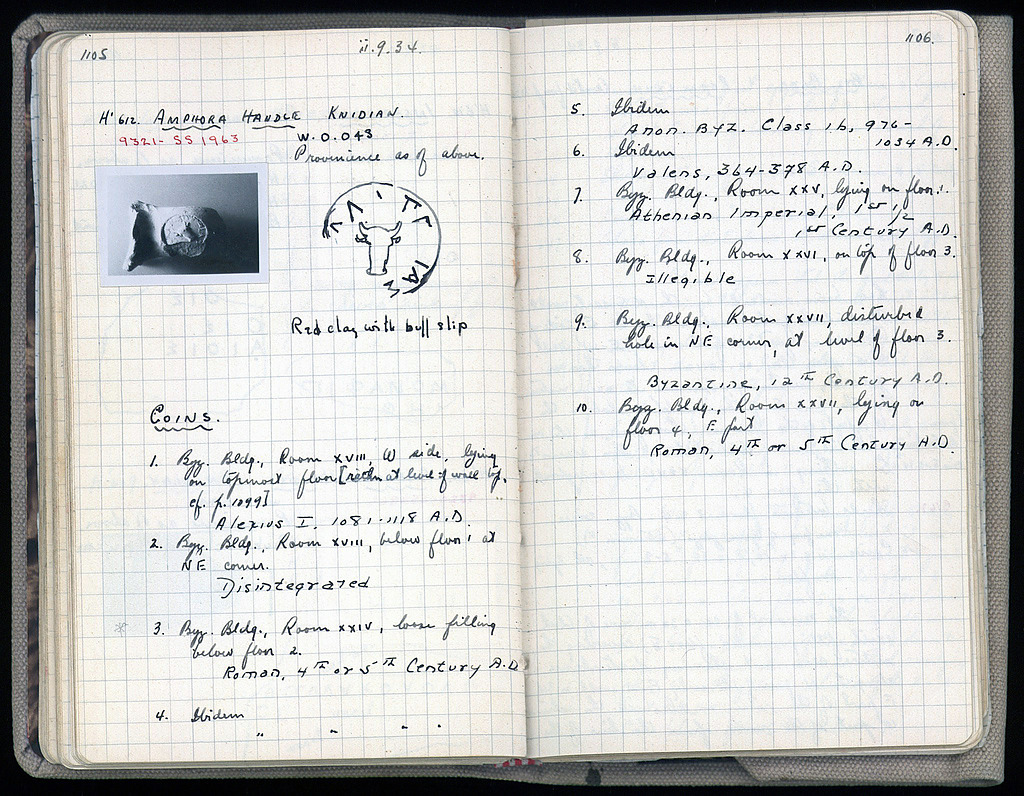 1105
ii.9.34.
H'612. AMPHORA HANDLE KNIDIAN.
9321- SS 1963
W.0.043
Provenience as of above.
Red clay with buff slip
COINS.
1. Byz. Bldg., Room XVIII, W side, lying
on topmost floor [at level of wall top,
cf. p. 1099]
Alexius I. 1081-1118 A.D.
2. Byz. Bldg., Room XVIII, below floor 1 at
NE corner.
Disintegrated
* 3. Byz. Bldg., Room XXIV, loose filling
below floor 2.
Roman, 4TH or 5TH Century A.D.
4. Ibidem
" " " "
1106.
5. Ibidem
Anon. Byz. Class 1b, 976-
1034 A.D.
6. Ibidem
Valens, 364-378 A.D.
7. Byz. Bldg., Room XXV, lying on floor 1.
Athenian Imperial, 1st 1/2
1st Century A.D.
8. Byz. Bldg., Room XXVI, on top of floor 3.
Illegible
9. Byz. Bldg., Room XXVII, disturbed
hole in NE corner, at level of floor 3.
Byzantine, 12TH Century A.D.
10. Byz. Bldg., Room XXVII, lying on
floor 4, E part
Roman, 4TH or 5TH Century A.D.